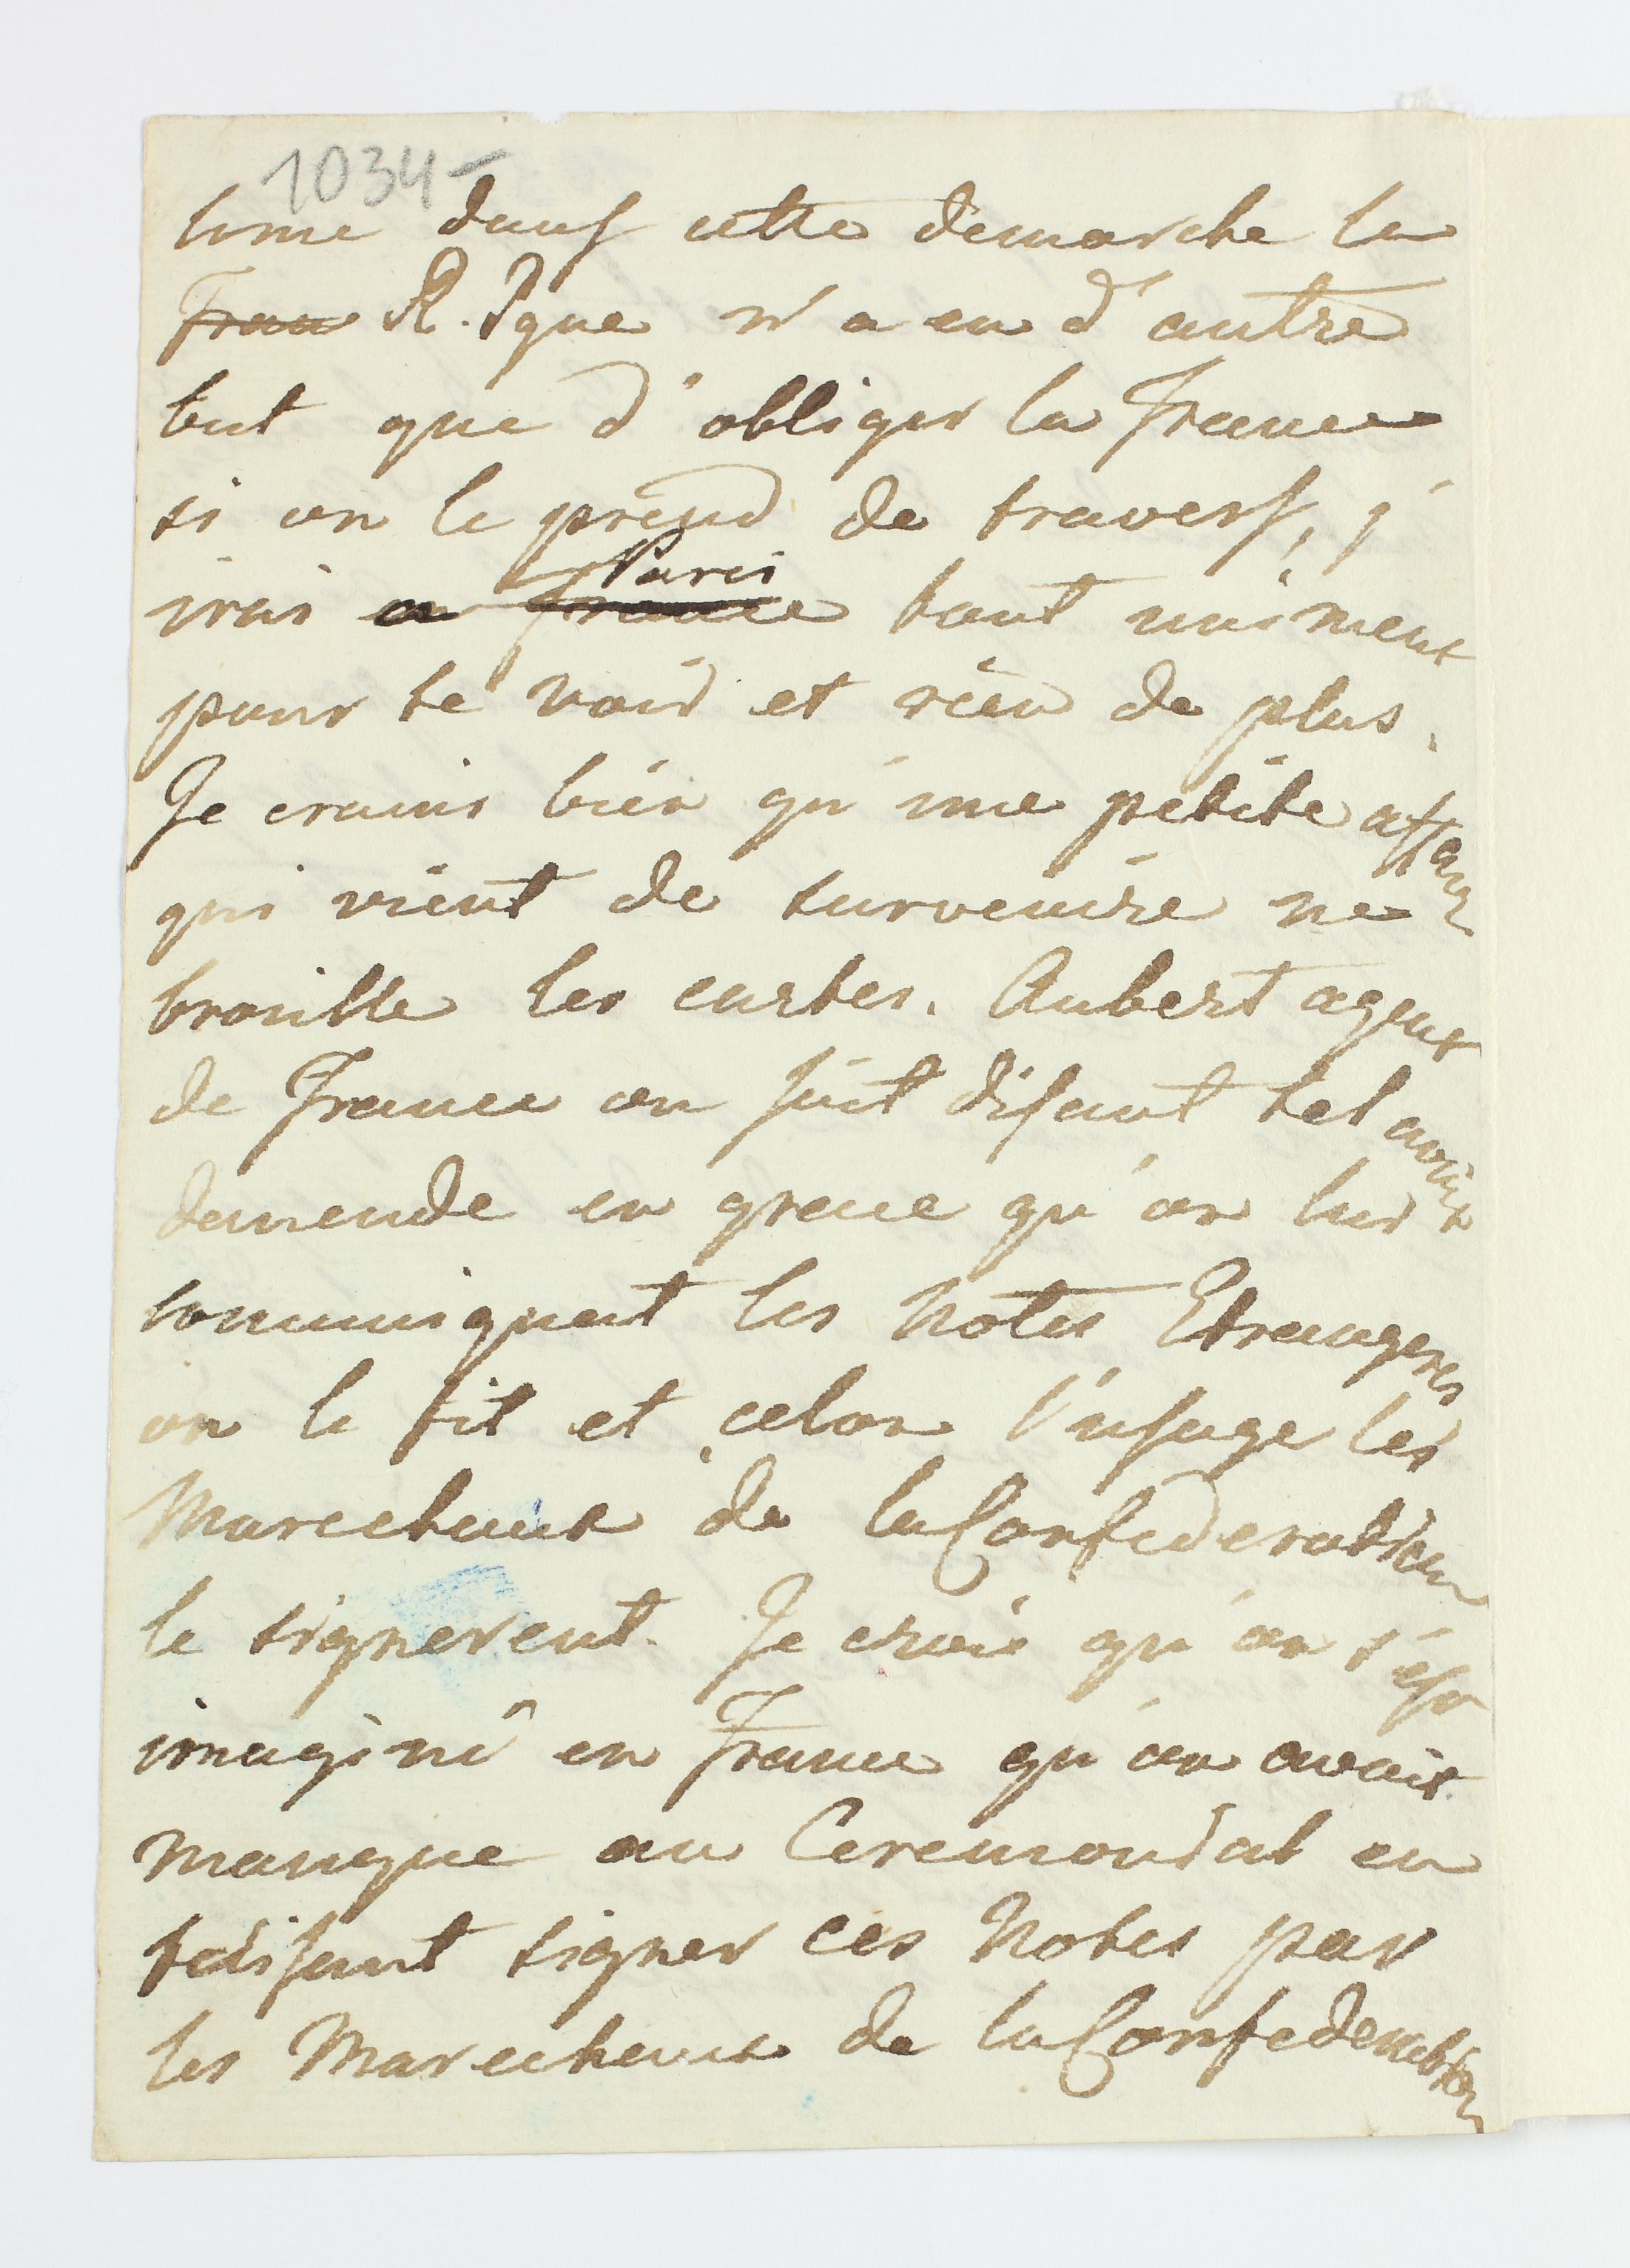 1034-
comme dans cette demarche la
Frau R. Pque n'a eu d'autre
but que d'obliger la France
si on le prend de travers, j'
irai a france Paris tout uniment
pour te voir et rien de plus.
Je crains bien qu'une petite affaire
qui vient de survenire ne
brouille les cartes. Aubert agent
de France ou soit disant tel avait
demende en grace qu'on lui
communiquat les Notes Etrangeres
on le fit et celon l'usage les
Marechaux de la Confederation
le signerent. Je crois qu'on s'est
imaginé en France qu'on avait
manque au Ceremonial en
faisant signer ces Notes par
les Marechaux de la Confederation